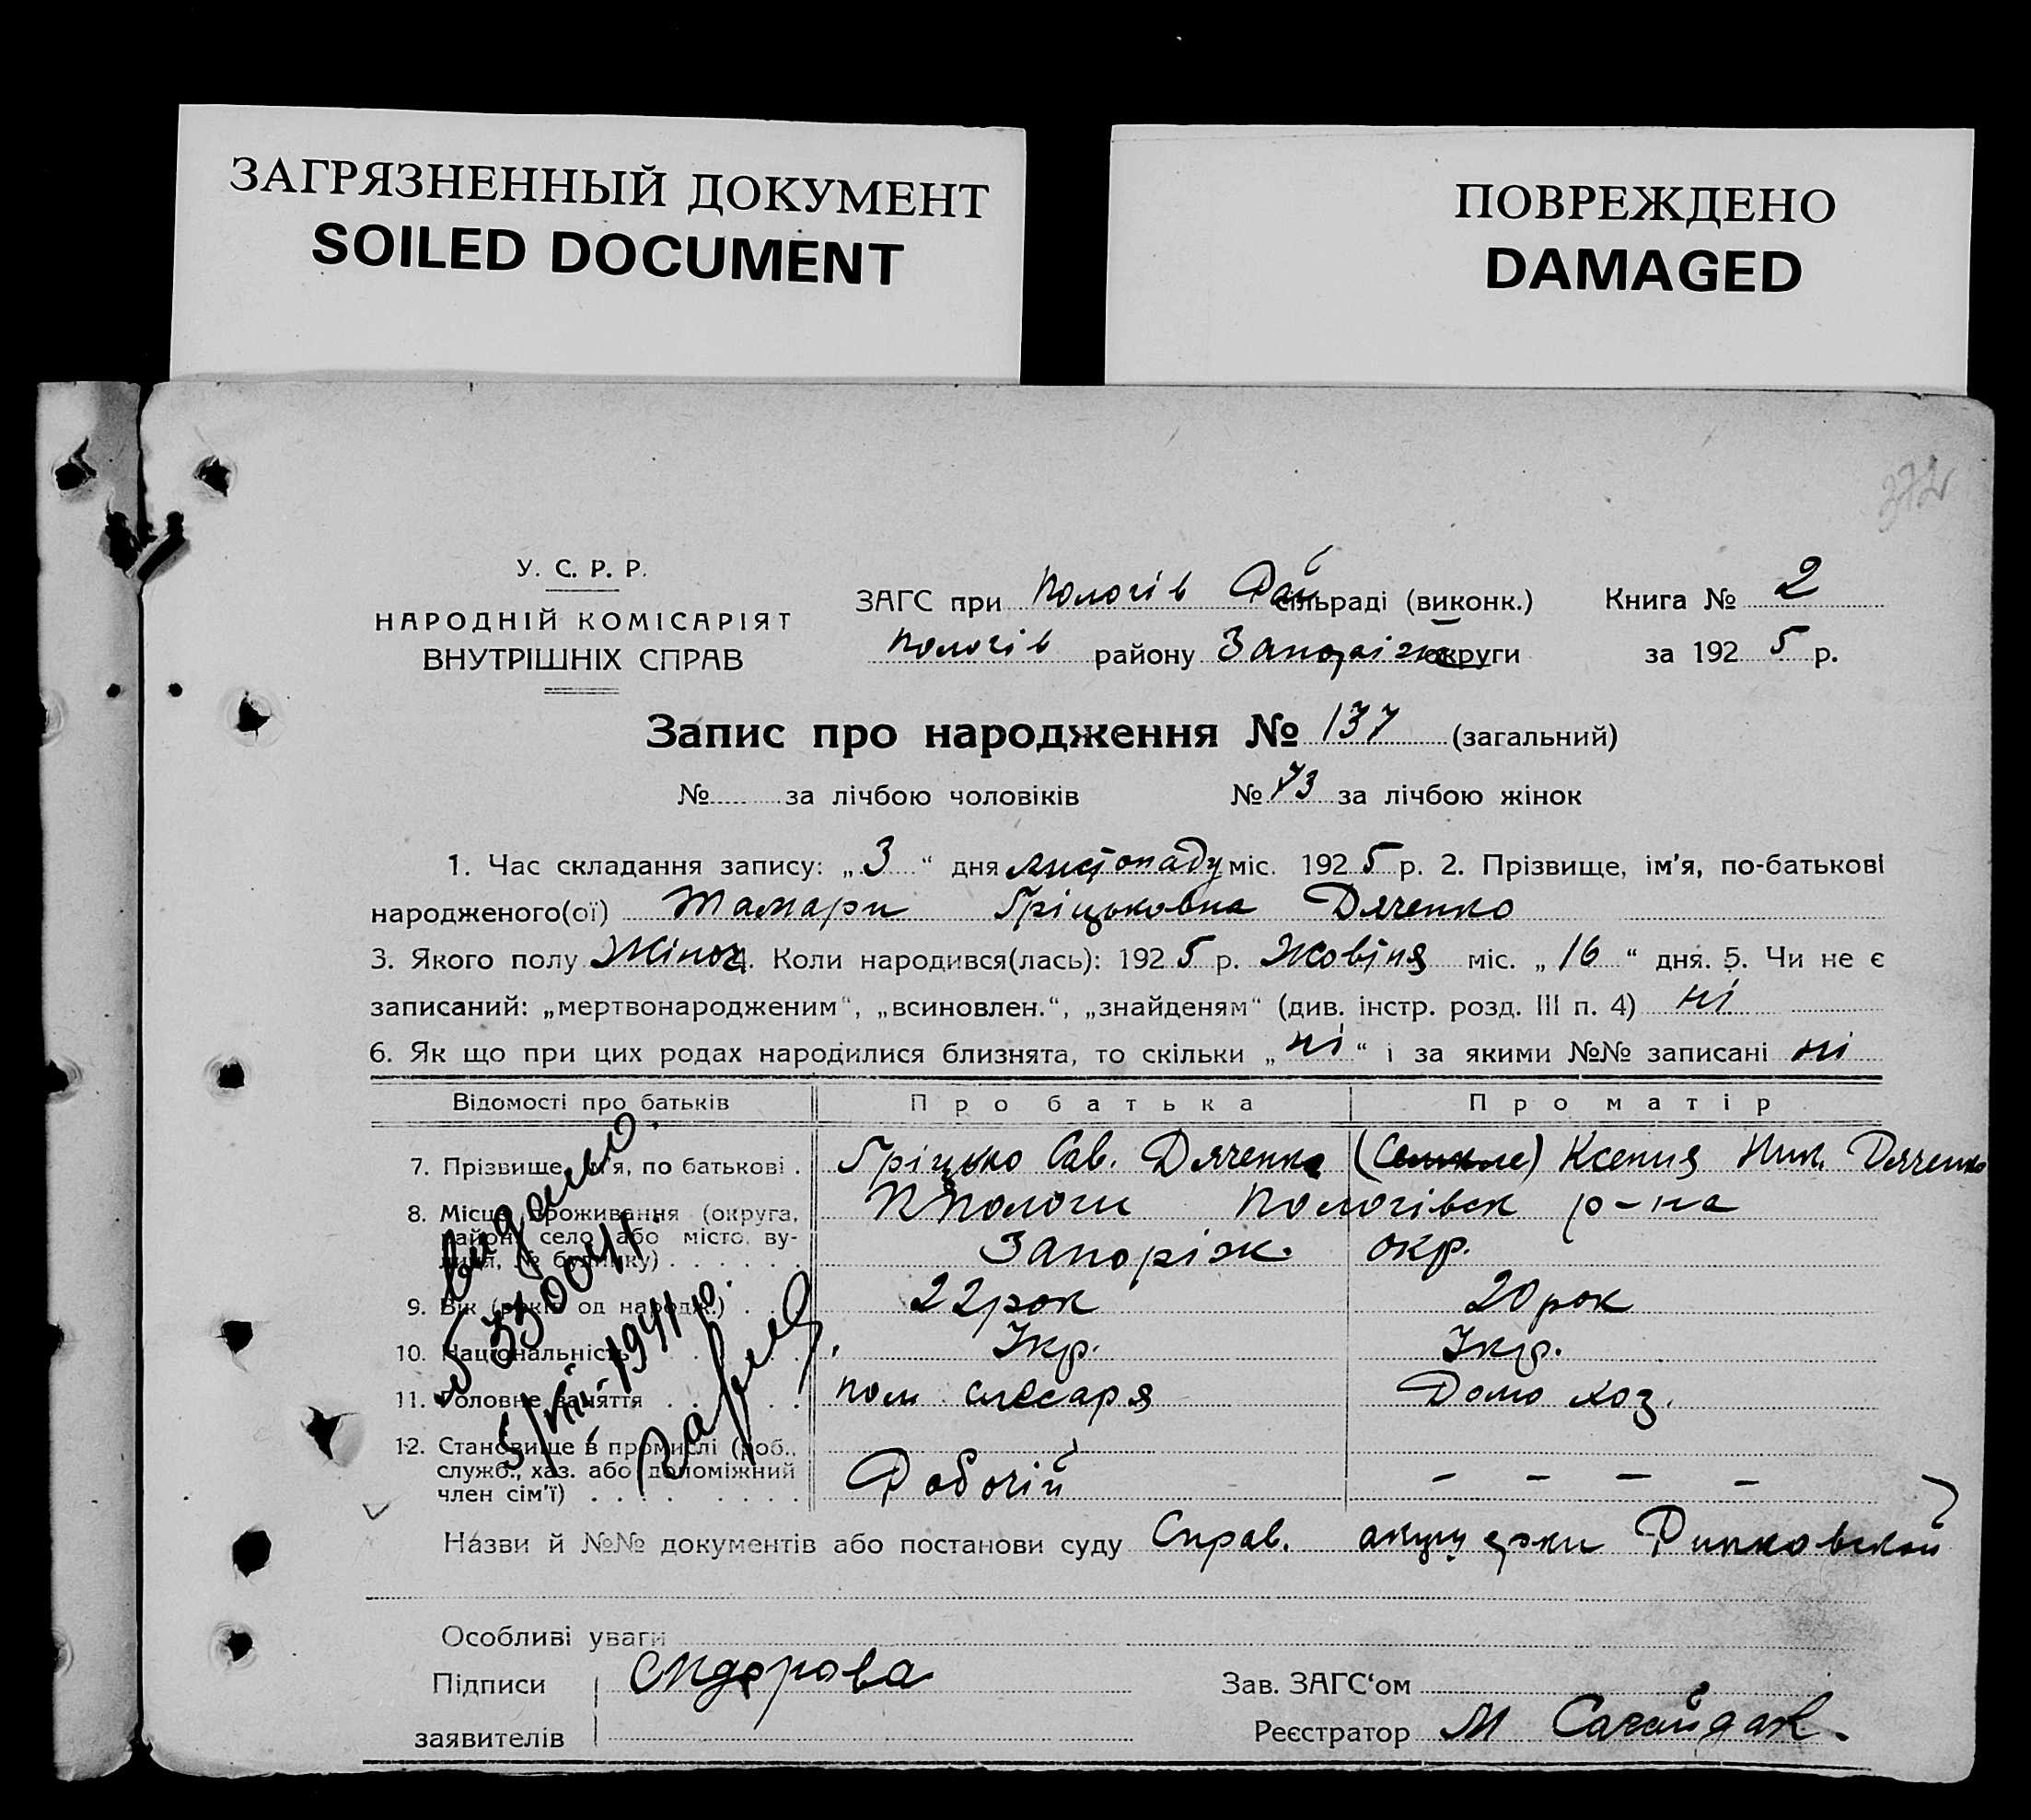 ЗАГРЯЗНЕННЫЙ ДОКУМЕНТ
SOILED DOCUMENT
ПОВРЕЖДЕНО
DAMAGED
372
У. С. Р. Р.
НАРОДНІЙ КОМІСАРІЯТ
ВНУТРІШНІХ СПРАВ
ЗАГС при Пологів Рай сільраді (виконк.) Книга № 2
Пологів району Запоріжс округи за 1925 р.
Запис про народження № 137 (загальний)
№ за лічбою чоловіків № 73 за лічбою жінок
1. Час складання запису: „3“ дня листопаду міс. 1925 р. 2. Прізвище, ім'я, по-батькові
народженого(ої) Тамари Гріцьковна Дяченко
3. Якого полу Жіноч. 4. Коли народився(лась): 1925 р. Жовтня міс. „16“ дня. 5. Чи не є
записаний: „мертвонародженим“, „всиновлен.“, „знайденям“ (див. інстр. розд. III п. 4) ні
6. Як що при цих родах народилися близнята, то скільки „ні“ і за якими №№ записані ні
Відомості про батьків Про батька Про матір
7. Прізвище, ім'я, по батькові . Гріцько Сав. Дяченко Ксения Ник. Дяченко
8. Місце проживання (округа, Пологи Пологівск р-на
район, село або місто, ву-
лиця, № будинку) Запоріж. окр.
9. Вік (років од народж.) . . 22 рок 20 рок
10. Національність Укр. Укр.
11. Головне заняття пом слесаря Домо хоз.
12. Становище в промислі (роб.,
служб., хаз. або допоміжний
член сім'ї) Рабочій – – – –
видано.
5/VII-1941 р.
Назви й №№ документів або постанови суду Справ. акушерки Рипковской
Особливі уваги
Підписи Сидорова Зав. ЗАГС'ом
заявителів Реєстратор М Сагайдак.